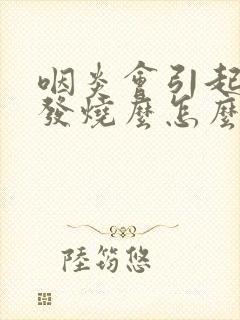 咽炎會引起
發燒麼怎麼
陸筠悠